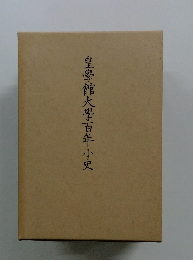 皇學館大學百年小史